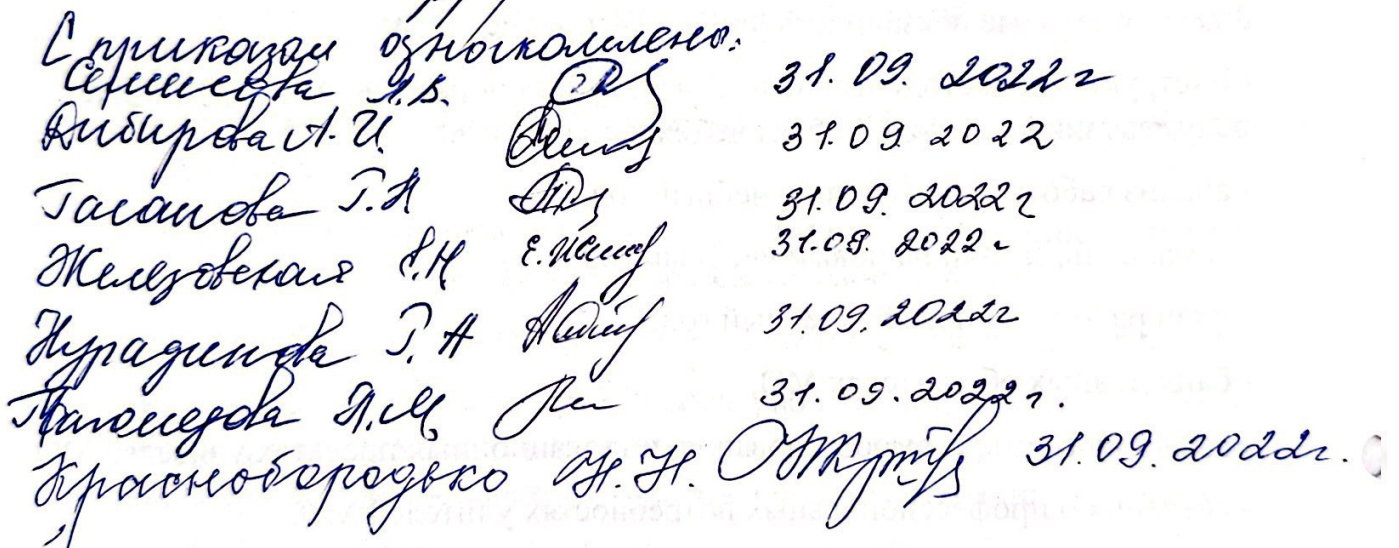 С приказом ознакомлены:
Семисова А.В. 31.09.2022г
Дибирова А.И. 31.09 2022
Гасанова Г.Н 31.09.2022г
Железовская Е.Н Е.Желез 31.09.2022г
Нурадинова Г.А 31.09.2022г
Магомедова П.М. 31.09.2022г.
Краснобородько Н.Н. 31.09.2022г.